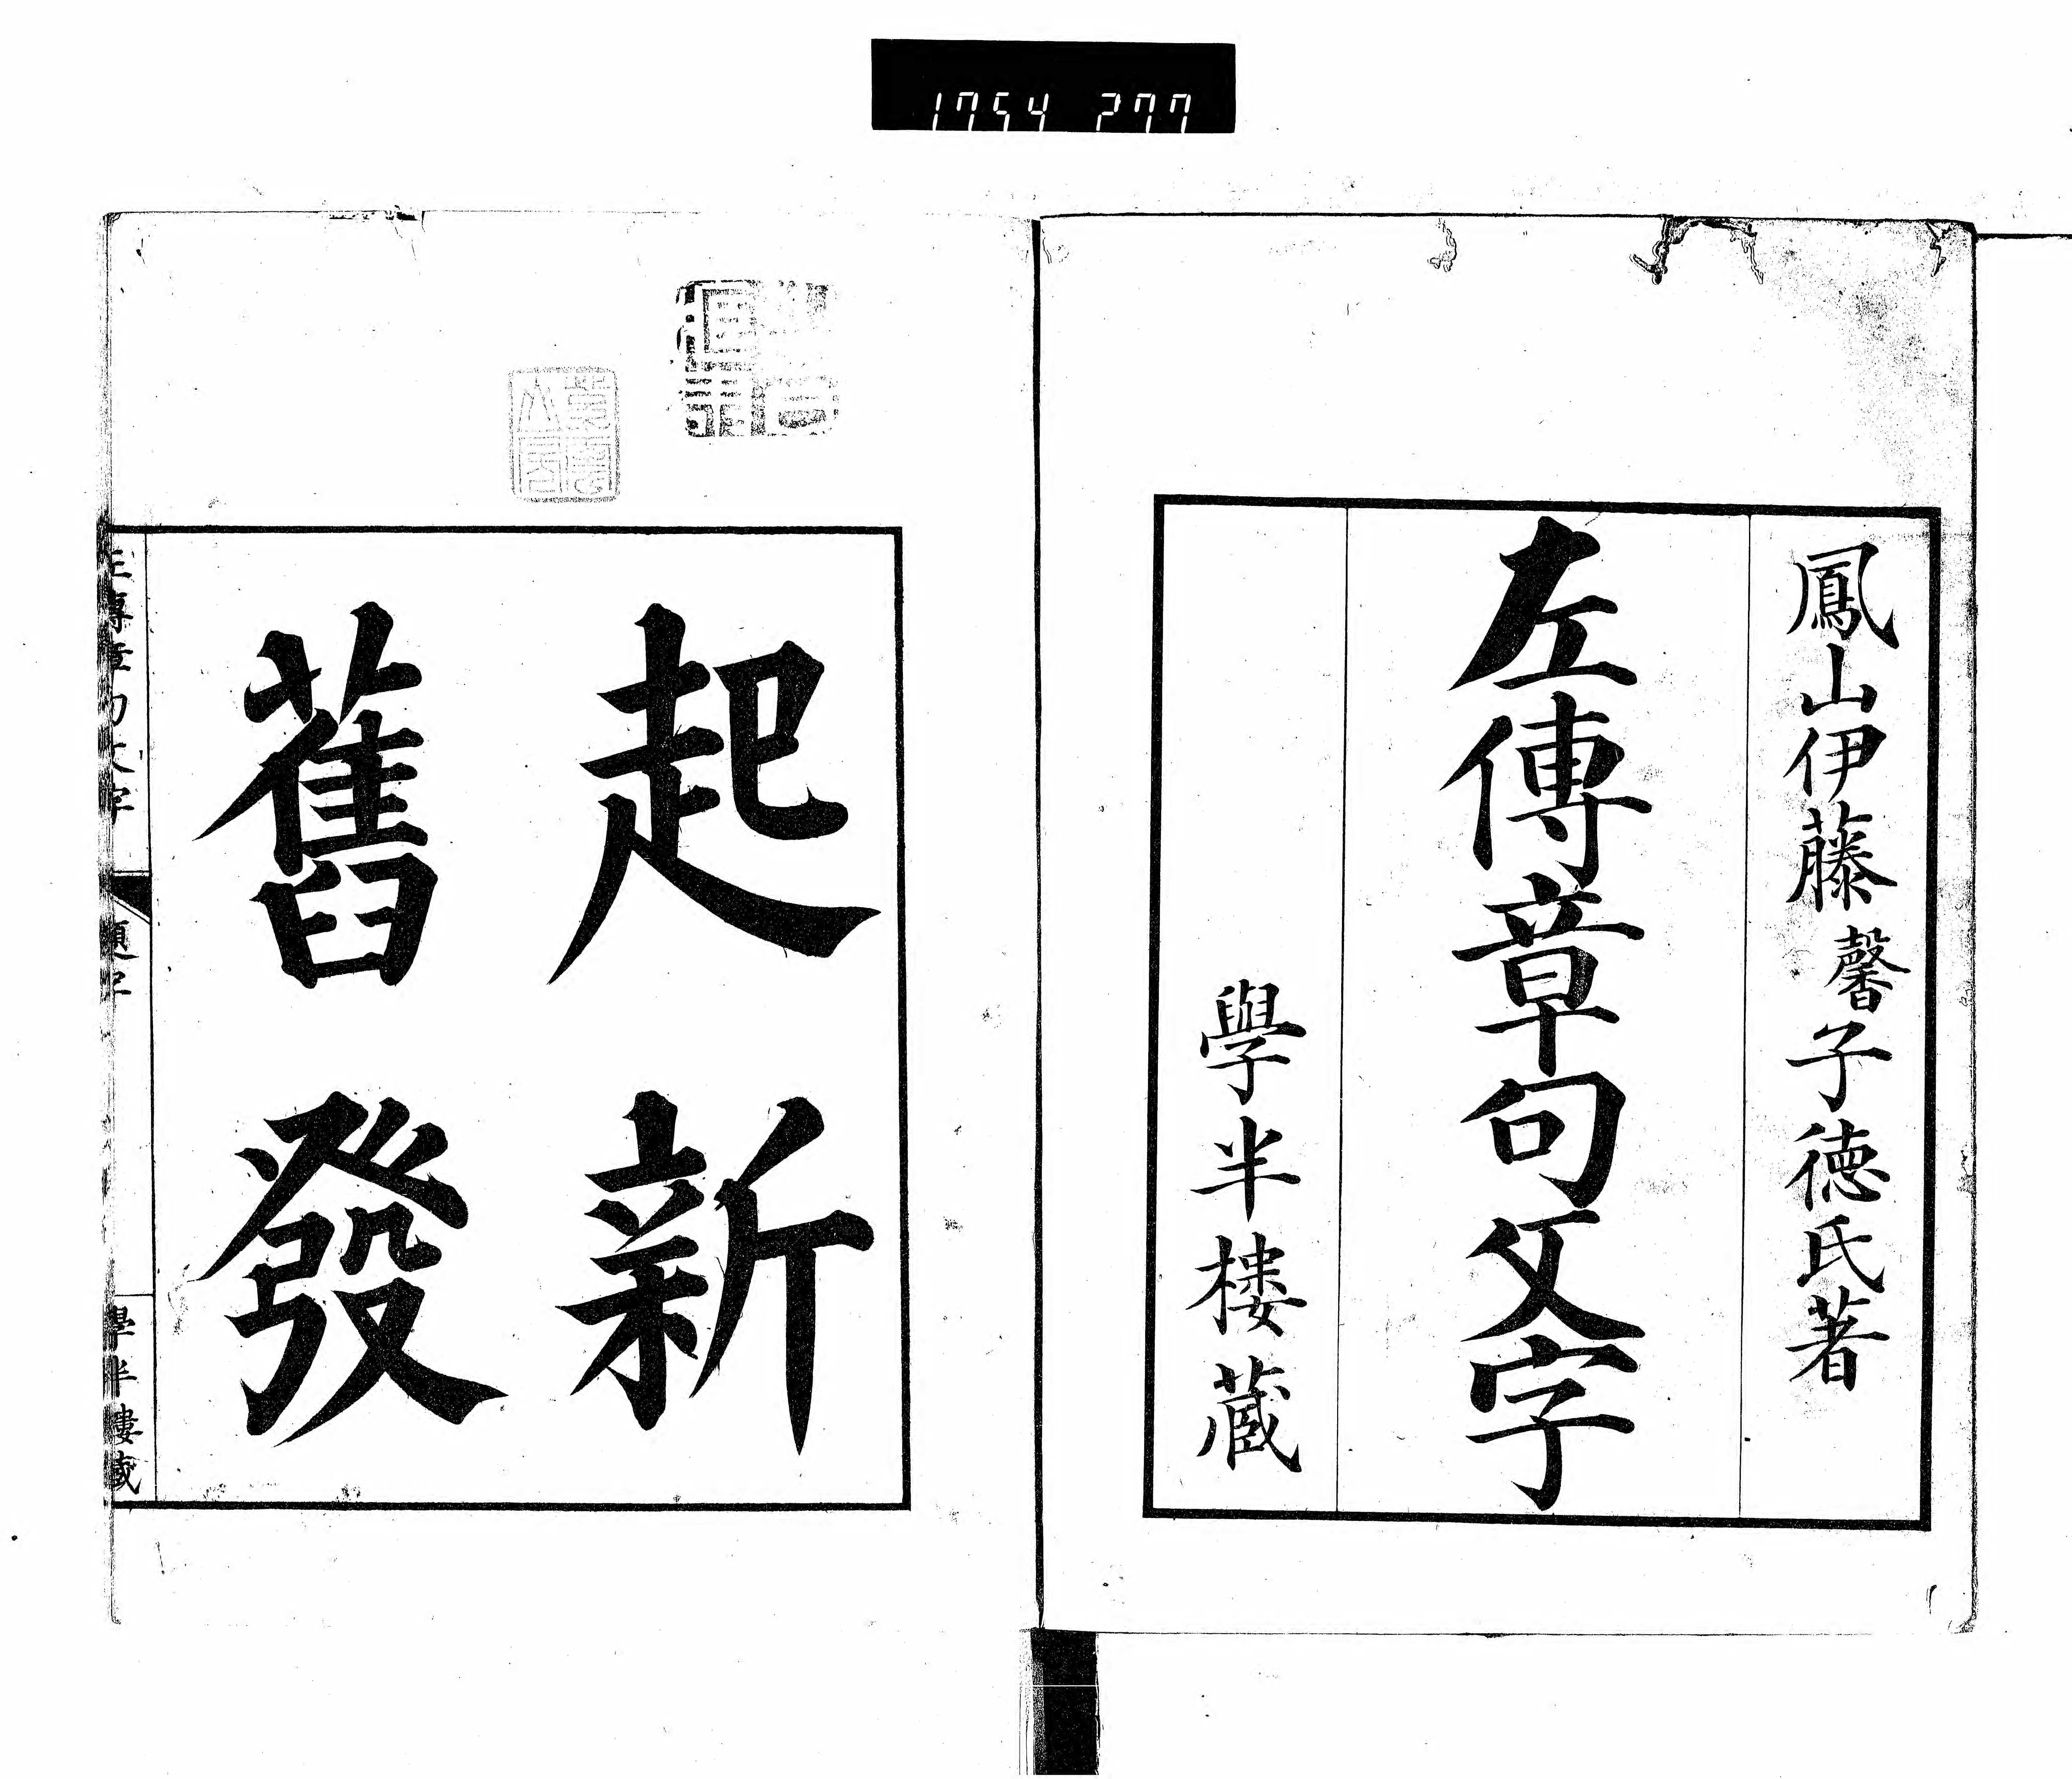 1754 277
鳳山伊藤馨子徳氏著
左傳章句文字
學半樓藏
起新
舊發
左傳章句文字
題字
學半樓藏